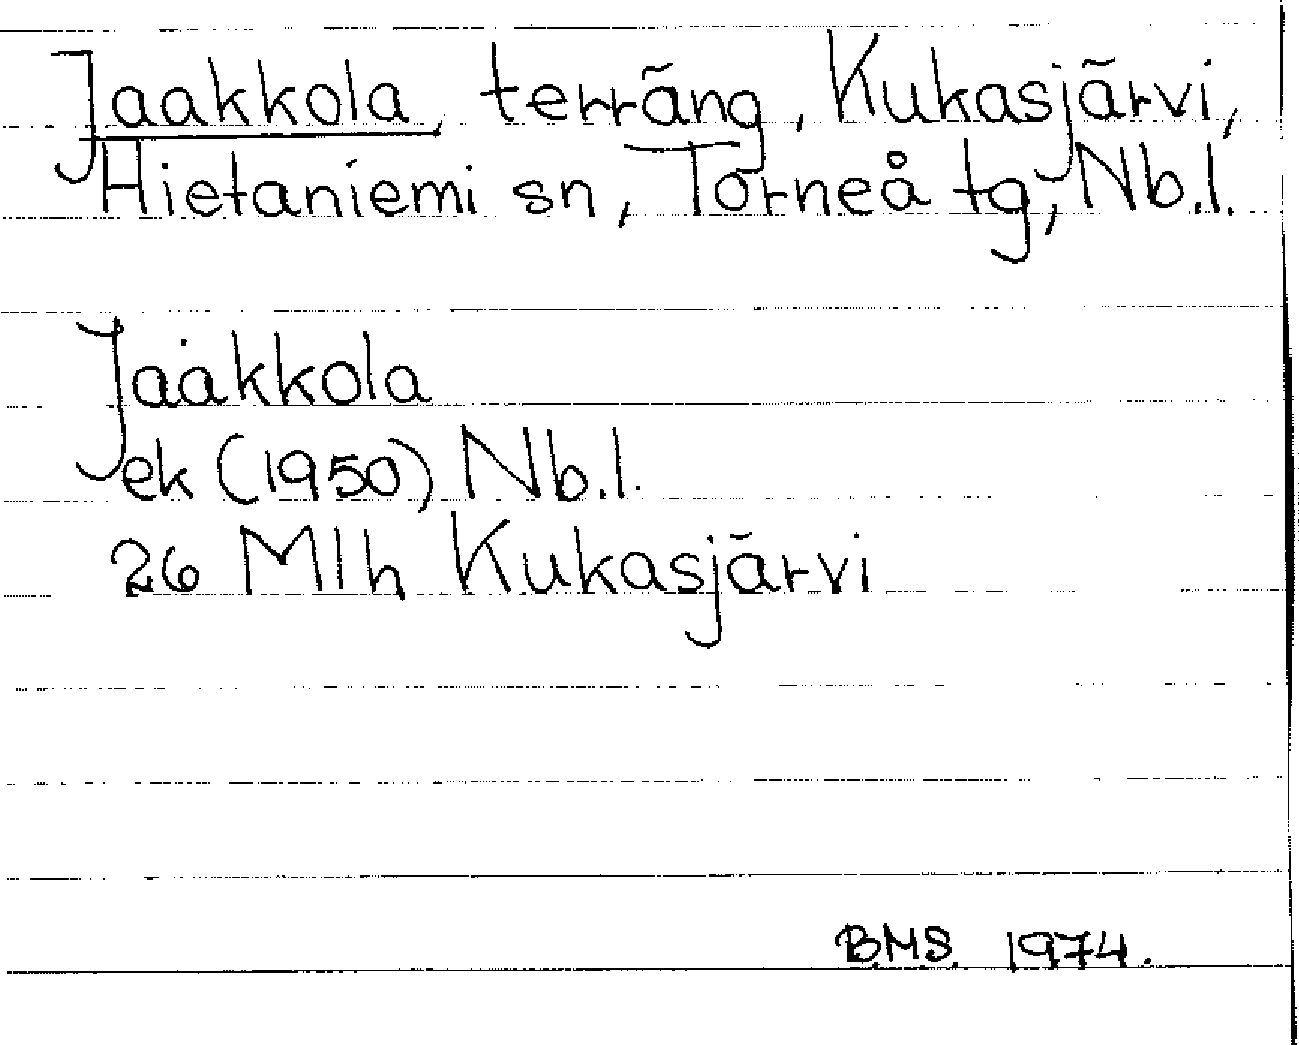 Jaakkola, terräng, Kukasjärvi,
Hietaniemi sn, Torneå tg, Nb.l.
Jaakkola
ek (1950) Nb.l.
26 Mlh Kukasjärvi
B.M.S. 1974.